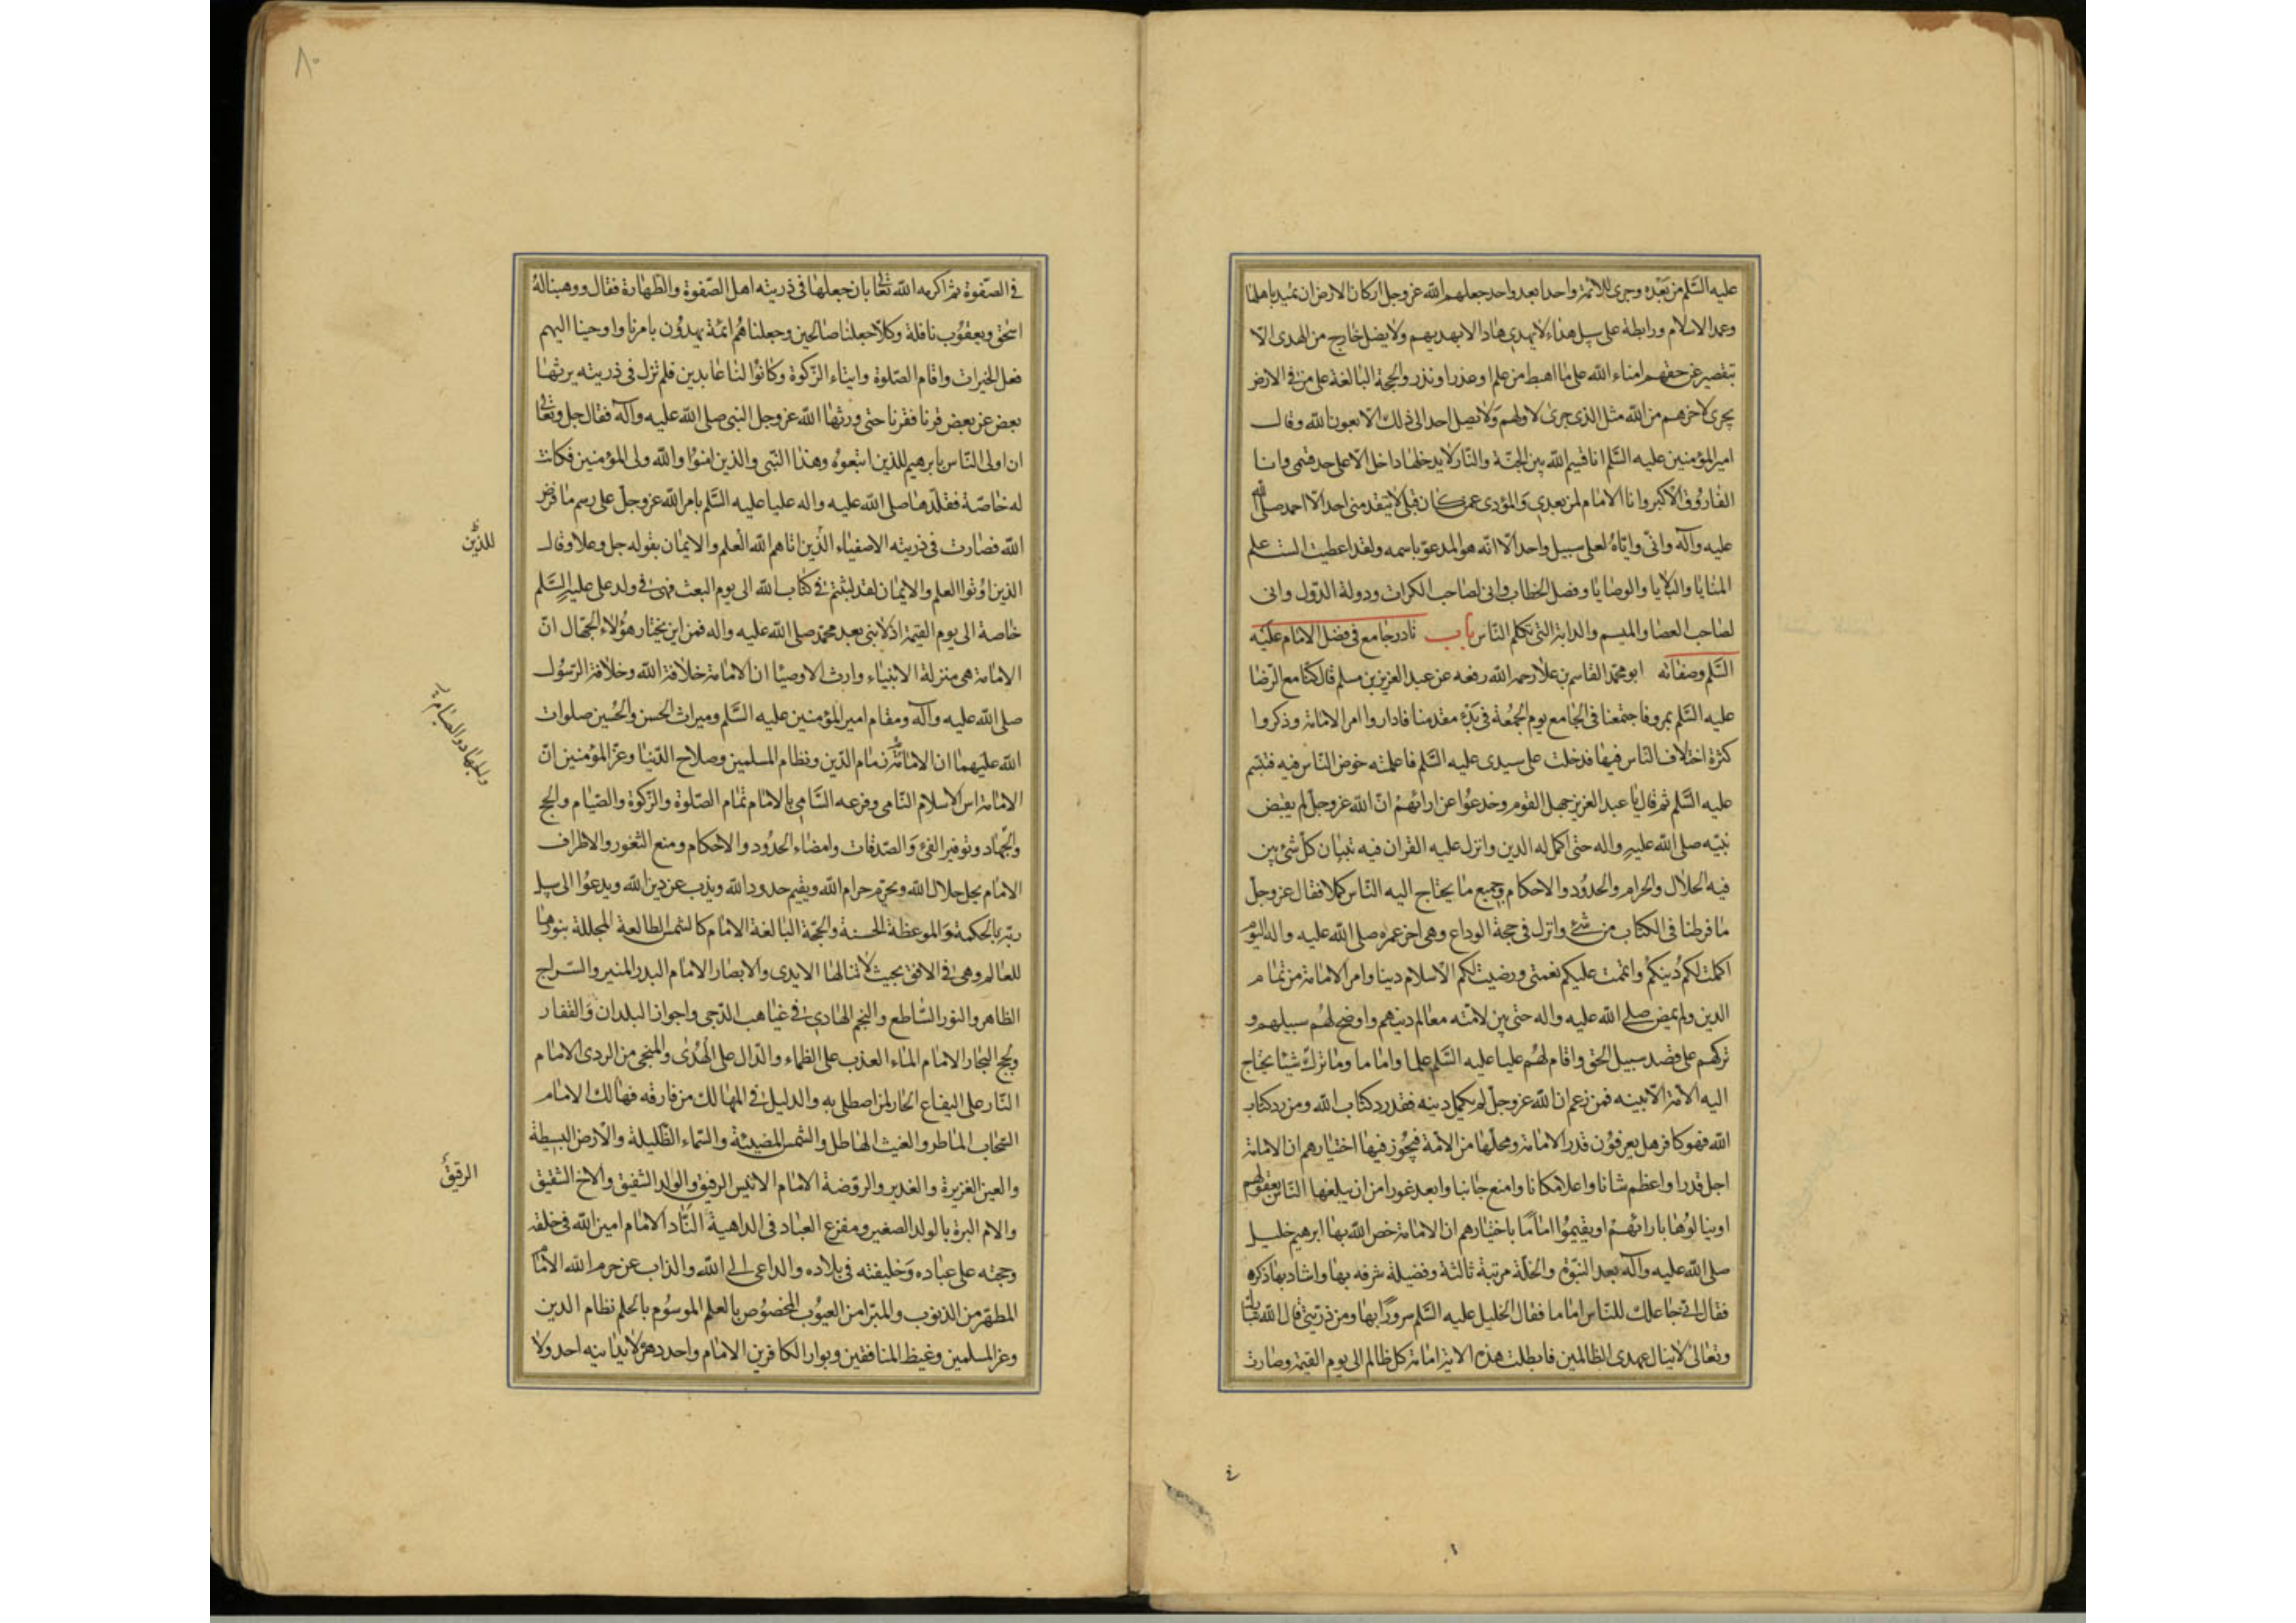 عليه السلم من بعده وجرى للائمة واحدا بعد واحد جعلهم الله عز وجل اركان الارض ان تميد باهلها
وعمد الاسلام ورابطة على سبيل هداه لا يهدى هاد الا بهديهم ولا يضل خارج من الهدى الا
بتقصير عن حقهم امناء الله على ما اهبط من علم او عذر او نذر والحجة البالغة على من فى الارض
يجرى لاخرهم من الله مثل الذى جرى لاولهم ولا يصل احد الى ذلك الا بعون الله وقال
امير المؤمنين عليه السلم انا قسيم الله بين الجنة والنار لا يدخلها داخل الا على حد قسمى وانا
الفاروق الاكبر وانا الامام لمن بعدى والمؤدى عمن كان قبلى لا يتقدمنى احد الا احمد صلى الله
عليه وآله وانى واياه لعلى سبيل واحد الا انه هو المدعو باسمه ولقد اعطيت الست علم
المنايا والبلايا والوصايا وفصل الخطاب وانى لصاحب الكرات ودولة الدول وانى
لصاحب العصا والميسم والدابة التى تكلم الناس باب نادر جامع فى فضل الامام عليه
السلم وصفاته ابو محمد القاسم بن علا رحمه الله رفعه عن عبد العزيز بن مسلم قال كنا مع الرضا
عليه السلم بمرو فاجتمعنا فى الجامع يوم الجمعة فى بدء مقدمنا فاداروا امر الامامة وذكروا
كثرة اختلاف الناس فيها فدخلت على سيدى عليه السلم فاعلمته خوض الناس فيه فتبسم
عليه السلم ثم قال يا عبد العزيز جهل القوم وخدعوا عن ارائهم ان الله عز وجل لم يقبض
نبيه صلى الله عليه واله حتى اكمل له الدين وانزل عليه القران فيه تبيان كل شئ بين
فيه الحلال والحرام والحدود والاحكام وجميع ما يحتاج اليه الناس كملا فقال عز وجل
ما فرطنا فى الكتاب من شئ وانزل فى حجة الوداع وهى اخر عمره صلى الله عليه واله اليوم
اكملت لكم دينكم واتممت عليكم نعمتى ورضيت لكم الاسلام دينا وامر الامامة من تمام
الدين ولم يمض صلى الله عليه واله حتى بين لامته معالم دينهم واوضح لهم سبيلهم و
تركهم على قصد سبيل الحق واقام لهم عليا عليه السلم علما واماما وما ترك شيئا يحتاج
اليه الامة الا بينه فمن زعم ان الله عز وجل لم يكمل دينه فقد رد كتاب الله ومن رد كتاب
الله فهو كافر هل يعرفون قدر الامامة ومحلها من الامة فيجوز فيها اختيارهم ان الامامة
اجل قدرا واعظم شانا واعلا مكانا وامنع جانبا وابعد غورا من ان يبلغها الناس بعقولهم
او ينالوها بارائهم او يقيموا اماما باختيارهم ان الامامة خص الله بها ابرهيم خليل
صلى الله عليه وآله بعد النبوة والخلة مرتبة ثالثة وفضيلة شرفه بها واشاد بها ذكره
فقال انى جاعلك للناس اماما فقال الخليل عليه السلم سرورا بها ومن ذريتى قال الله تبارك
وتعالى لا ينال عهدى الظالمين فابطلت هذه الاية امامة كل ظالم الى يوم القيمة وصارت
٨٠
فى الصفوة ثم اكرمه الله تعالى بان جعلها فى ذريته اهل الصفوة والطهارة فقال ووهبنا له
اسحق ويعقوب نافلة وكلا جعلنا صالحين وجعلناهم ائمة يهدون بامرنا واوحينا اليهم
فعل الخيرات واقام الصلوة وايتاء الزكوة وكانوا لنا عابدين فلم تزل فى ذريته يرثها
بعض عن بعض قرنا فقرنا حتى ورثها الله عز وجل النبى صلى الله عليه وآله فقال جل وتعالى
ان اولى الناس بابرهيم للذين اتبعوه وهذا النبى والذين امنوا والله ولى المؤمنين فكانت
له خاصة فقلدها صلى الله عليه واله عليا عليه السلم بامر الله عز وجل على رسم ما فرض
الله فصارت فى ذريته الاصفياء الذين اتاهم الله العلم والايمان بقوله جل وعلا وقال
للذين
الذين اوتوا العلم والايمان لقد لبثتم فى كتاب الله الى يوم البعث فهى فى ولد على عليه السلم
خاصة الى يوم القيمة اذ لا نبى بعد محمد صلى الله عليه واله فمن اين يختار هؤلاء الجهال ان
الامامة هى منزلة الانبياء وارث الاوصيا ان الامامة خلافة الله وخلافة الرسول
صلى الله عليه وآله ومقام امير المؤمنين عليه السلم وميراث الحسن والحسين صلوات
الله عليهما ان الامامة زمام الدين ونظام المسلمين وصلاح الدنيا وعز المؤمنين ان
الامامة اس الاسلام النامى وفرعه السامى بالامام تمام الصلوة والزكوة والصيام والحج
والجهاد وتوفير الفئ والصدقات وامضاء الحدود والاحكام ومنع الثغور والاطراف
الامام يحل حلال الله ويحرم حرام الله ويقيم حدود الله ويذب عن دين الله ويدعوا الى سبيل
ربه بالحكمة والموعظة الحسنة والحجة البالغة الامام كالشمس الطالعة المجللة بنورها
للعالم وهى فى الافق بحيث لا تنالها الايدى والابصار الامام البدر المنير والسراج
الظاهر والنور الساطع والنجم الهادى فى غياهب الدجى واجواز البلدان والقفار
ولجج البحار الامام الماء العذب على الظماء والدال على الهدى والمنجى من الردى الامام
النار على اليفاع الحار لمن اصطلى به والدليل فى المهالك من فارقه فهالك الامام
السحاب الماطر والغيث الهاطل والشمس المضيئة والسماء الظليلة والارض البسيطة
والعين الغزيرة والغدير والروضة الامام الانيس الرفيق والوالد الشفيق والاخ الشقيق
الرفيق
والام البرة بالولد الصغير ومفزع العباد فى الداهية الناد الامام امين الله فى خلقه
وحجته على عباده وخليفته فى بلاده والداعى الى الله والذاب عن حرم الله الامام
المطهر من الذنوب والمبرا من العيوب المخصوص بالعلم الموسوم بالحلم نظام الدين
وعز المسلمين وغيظ المنافقين وبوار الكافرين الامام واحد دهره لا يدانيه احد ولا